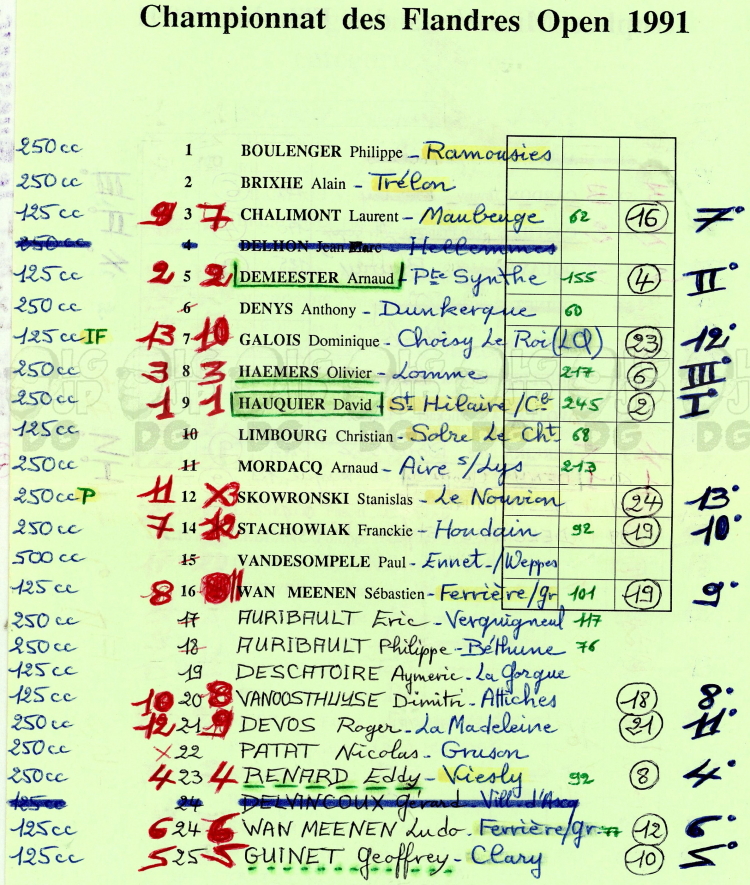 Championnat des Flandres Open 1991
250cc 1 BOULENGER Philippe - Ramousies
250cc 2 BRIXHE Alain - Trélon
125cc 3 7 CHALIMONT Laurent - Maubeuge 62 16 7°
250cc 4 DELHON Jean Marc - Hellemmes
125cc 2 5 2 DEMEESTER Arnaud - Pte Synthe 155 4 II°
250cc 6 DENYS Anthony - Dunkerque 60
125cc IF 13 7 10 GALOIS Dominique - Choisy Le Roi (LQ) 23 12°
250cc 3 8 3 HAEMERS Olivier - Lomme 217 6 III°
250cc 1 9 1 HAUQUIER David - St Hilaire/Cb 245 2 I°
125cc 10 LIMBOURG Christian - Solre Le Cht 68
250cc 11 MORDACQ Arnaud - Aire s/Lys 213
250cc P 11 12 SKOWRONSKI Stanislas - Le Nouvion 24 13°
250cc 7 14 12 STACHOWIAK Franckie - Houdain 92 19 10°
500cc 15 VANDESOMPELE Paul - Ennet-/Weppes
125cc 8 16 11 WAN MEENEN Sébastien - Ferrière/gr 101 19 9°
250cc 17 AURIBAULT Eric - Verquigneul 117
250cc 18 AURIBAULT Philippe - Béthune 76
125cc 19 DESCATOIRE Aymeric - La Gorgue
125cc 10 20 8 VANOOSTHUYSE Dimitri - Attiches 18 8°
250cc 12 21 9 DEVOS Roger - La Madeleine 21 11°
250cc 22 PATAT Nicolas - Gruson
250cc 4 23 4 RENARD Eddy - Viesly 92 8 4°
125cc 24 DELVINCOUX Gérard Vill. d'Ascq
125cc 6 24 6 WAN MEENEN Ludo - Ferrière/gr. 12 6°
125cc 5 25 5 GUINET Geoffrey - Clary 10 5°